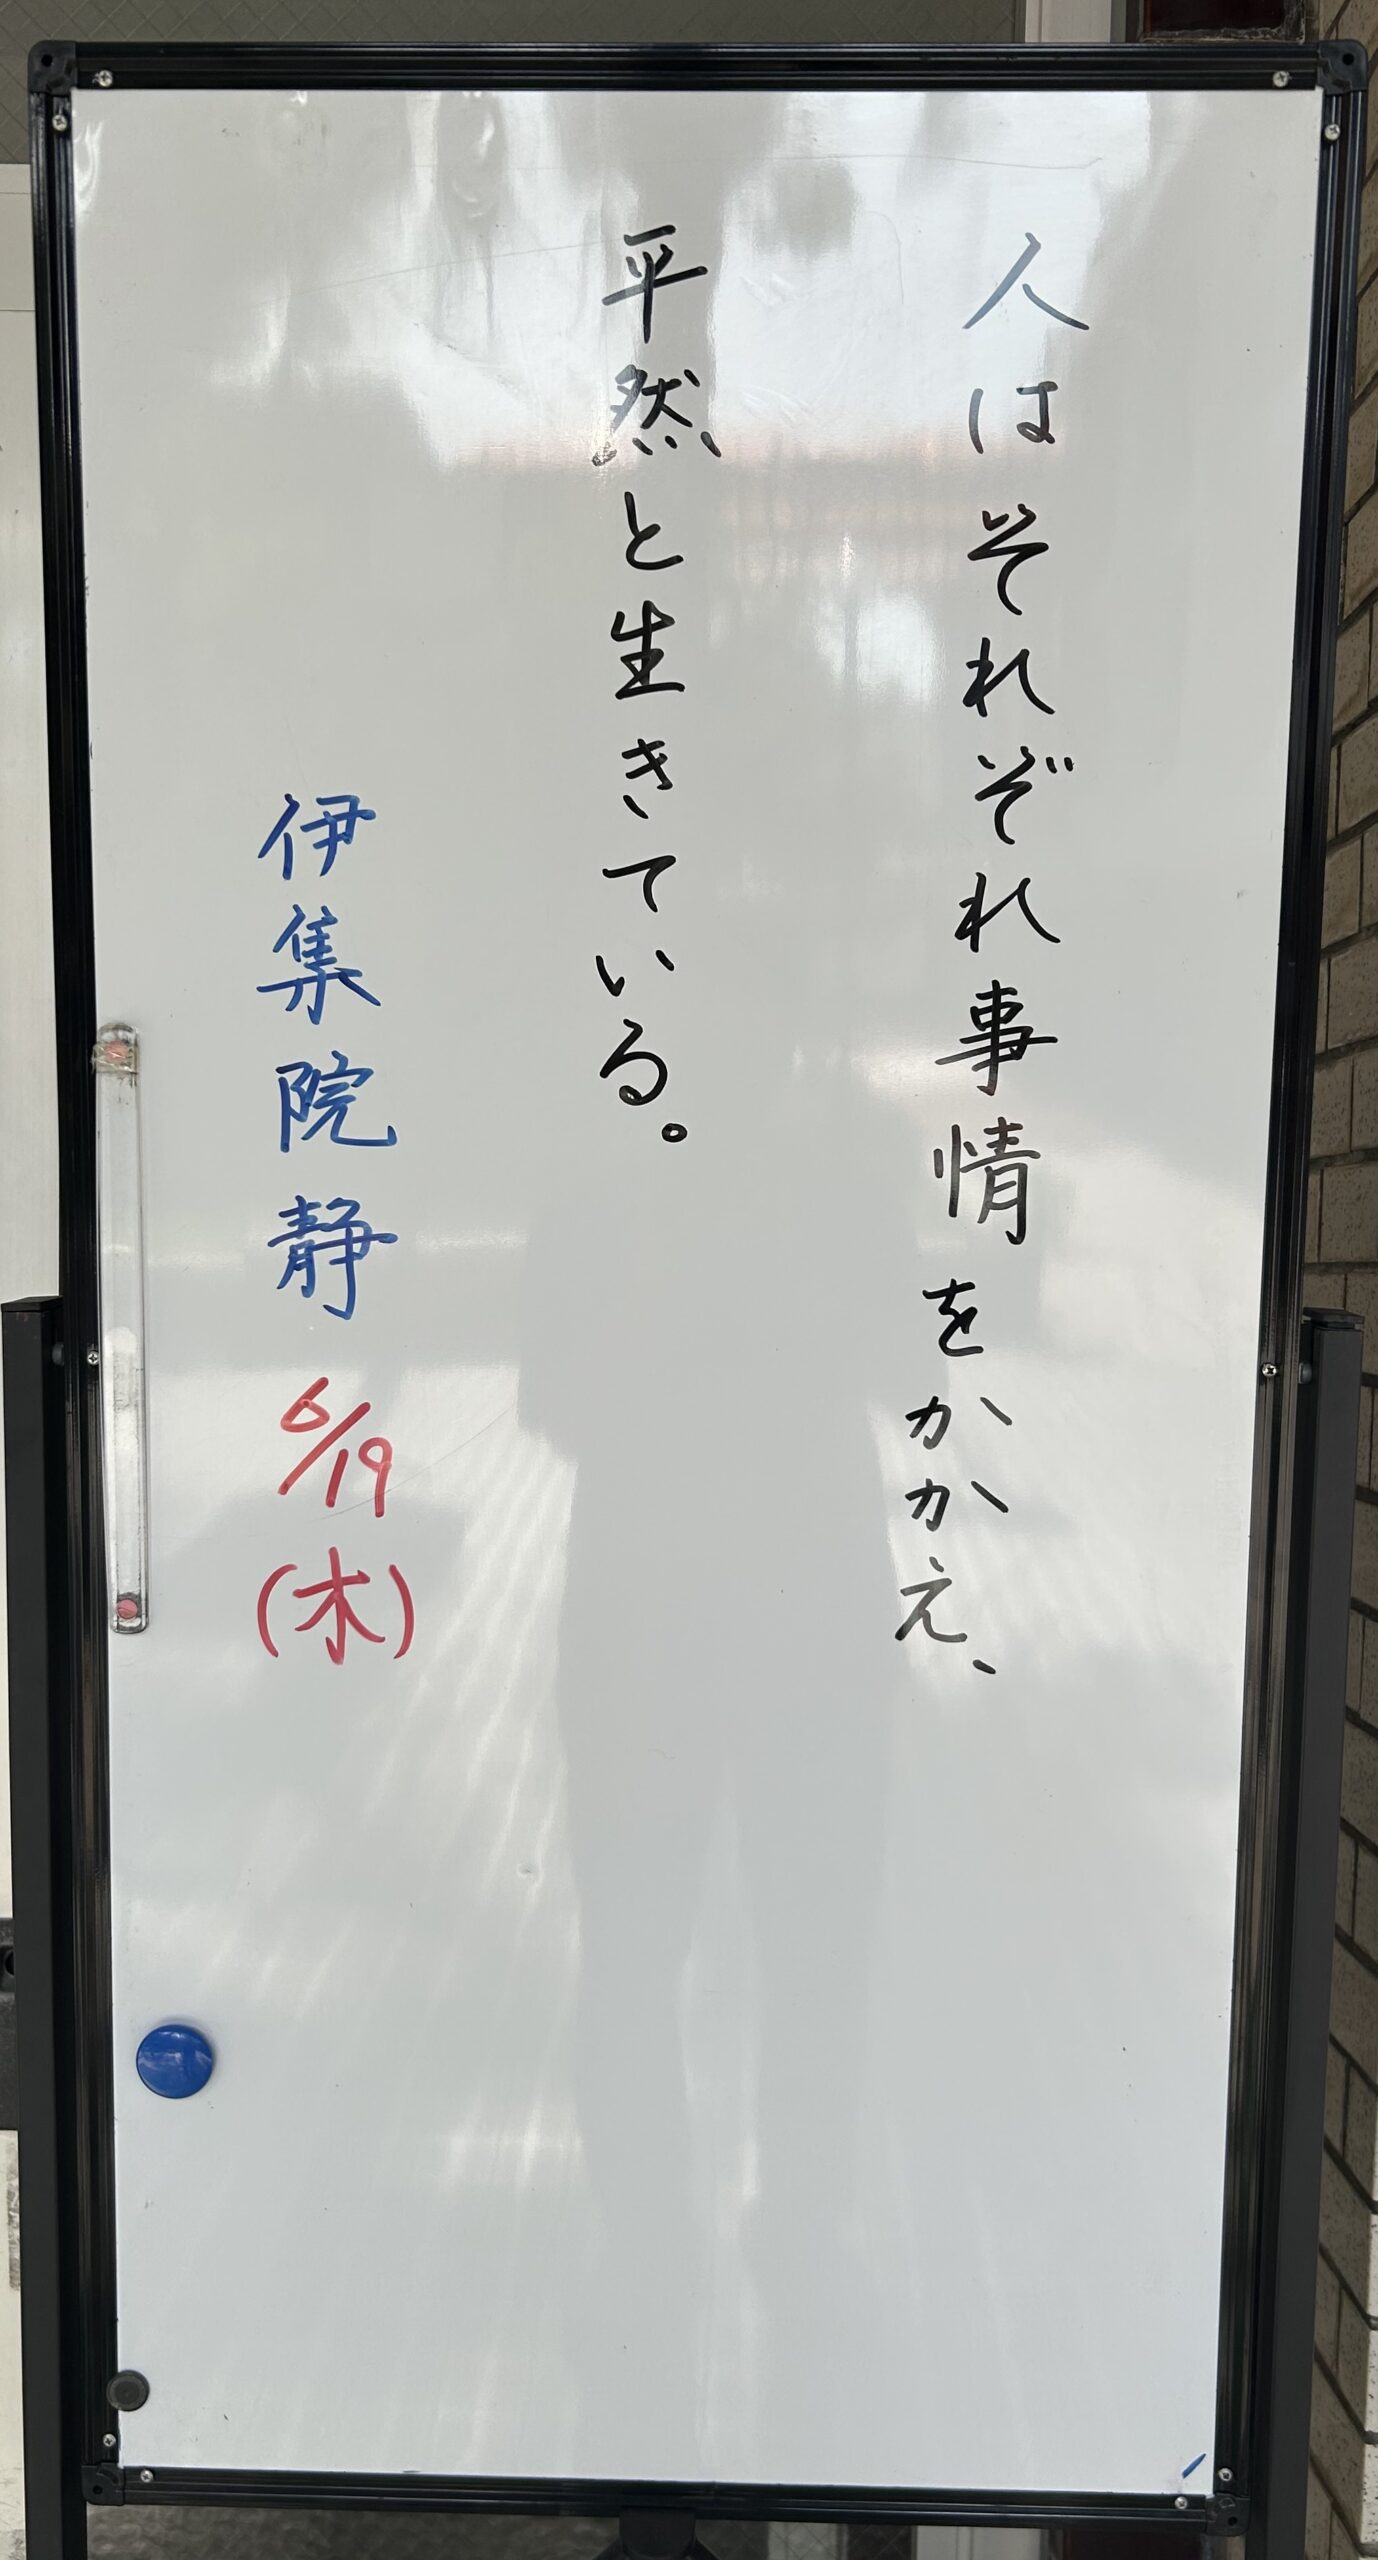 人はそれぞれ事情をかかえ、
平然と生きている。
伊集院静 6/19 (木)